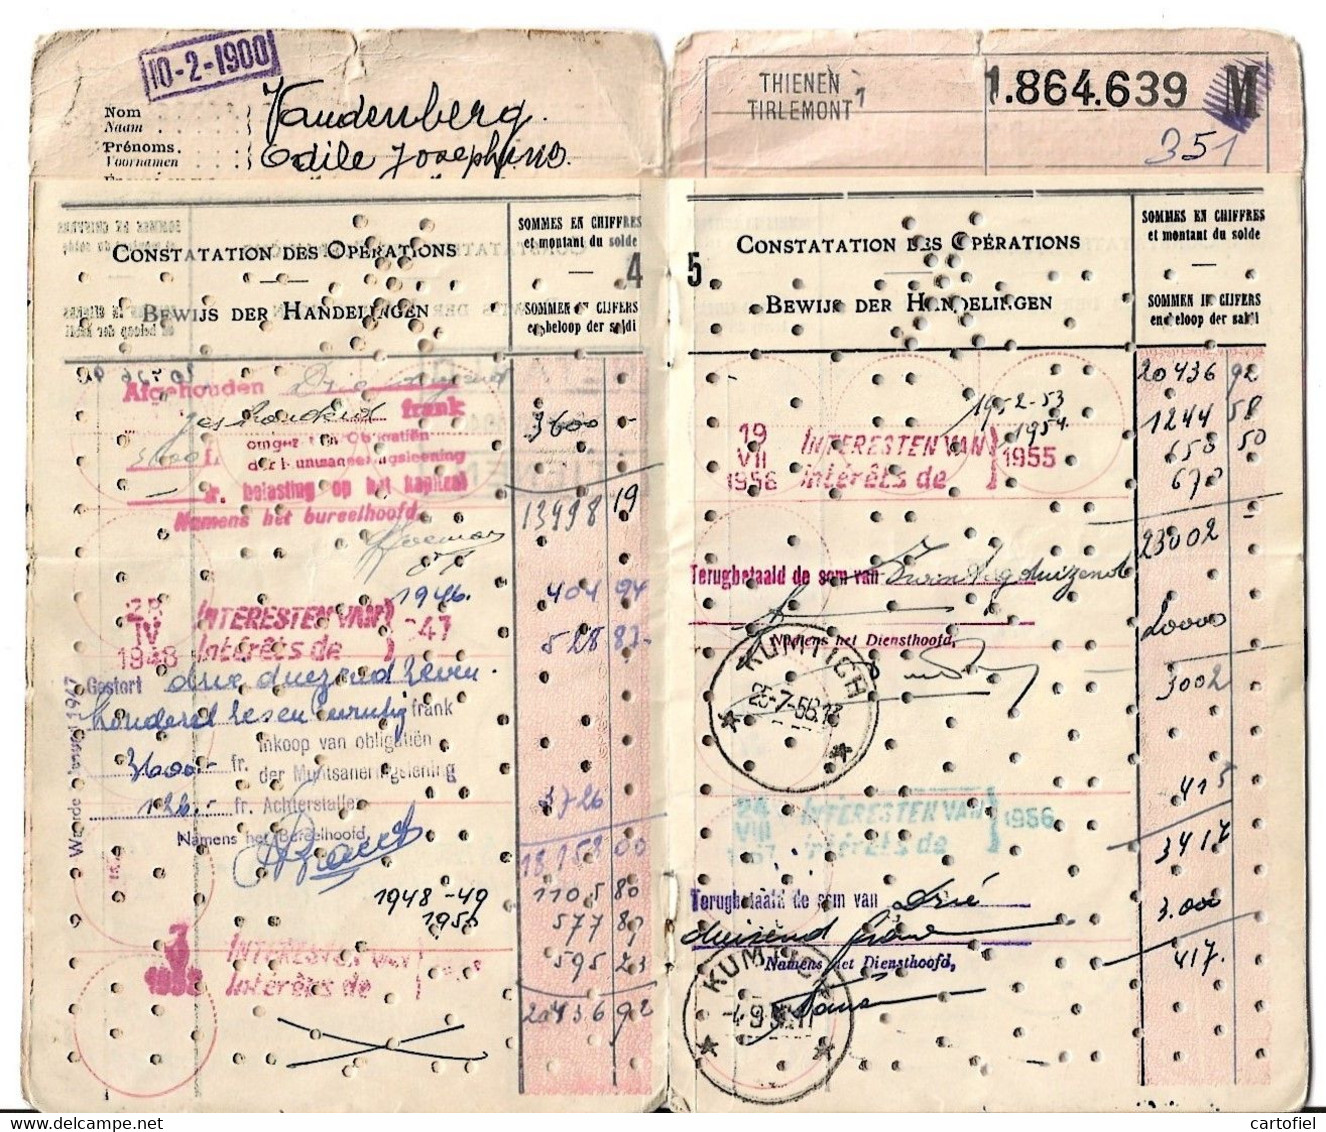 10-2-1900
Nom
Naam
Vandenberg.
Prénoms.
Voornamen
Odile Josephine.
THIENEN 1
TIRLEMONT
1.864.639 M
351
CONSTATATION DES OPÉRATIONS
BEWIJS DER HANDELINGEN
SOMMES EN CHIFFRES
et montant du solde
4
SOMMEN IN CIJFERS
en beloop der saldi
Afgehouden
frank 3600 -
3600 fr.
omgezet in Obligatiën
der Muntsaneeringsleening
fr. belasting op het kapitaal
Namens het bureelhoofd,
13998 19
1946.
404 94
28 IV 1948
INTERESTEN VAN
Intérêts de
47
528 87
Gestort drie duizend zeven
honderd zesentwintig frank
Inkoop van obligatiën
3600.- fr. der Muntsaneringslening
126.- fr. Achterstallen
3726
Namens het Bureelhoofd,
18.658 00
1948-49
1950
1105 80
577 89
595 23
INTERESTEN VAN
Intérêts de
20436 92
5
CONSTATATION DES OPÉRATIONS
BEWIJS DER HANDELINGEN
SOMMES EN CHIFFRES
et montant du solde
SOMMEN IN CIJFERS
en beloop der saldi
20436 92
1952-53
1954
1244 58
658 50
19 VII 1956
INTERESTEN VAN
Intérêts de
1955
670
23002 -
Terugbetaald de som van Twintig duizend
20000
Namens het Diensthoofd,
KUMTICH
3002
415
24 VIII
INTERESTEN VAN
Intérêts de
1956
3417
Terugbetaald de som van Drie
duizend frank
3.000
Namens het Diensthoofd,
KUMTICH
417.
cartofiel